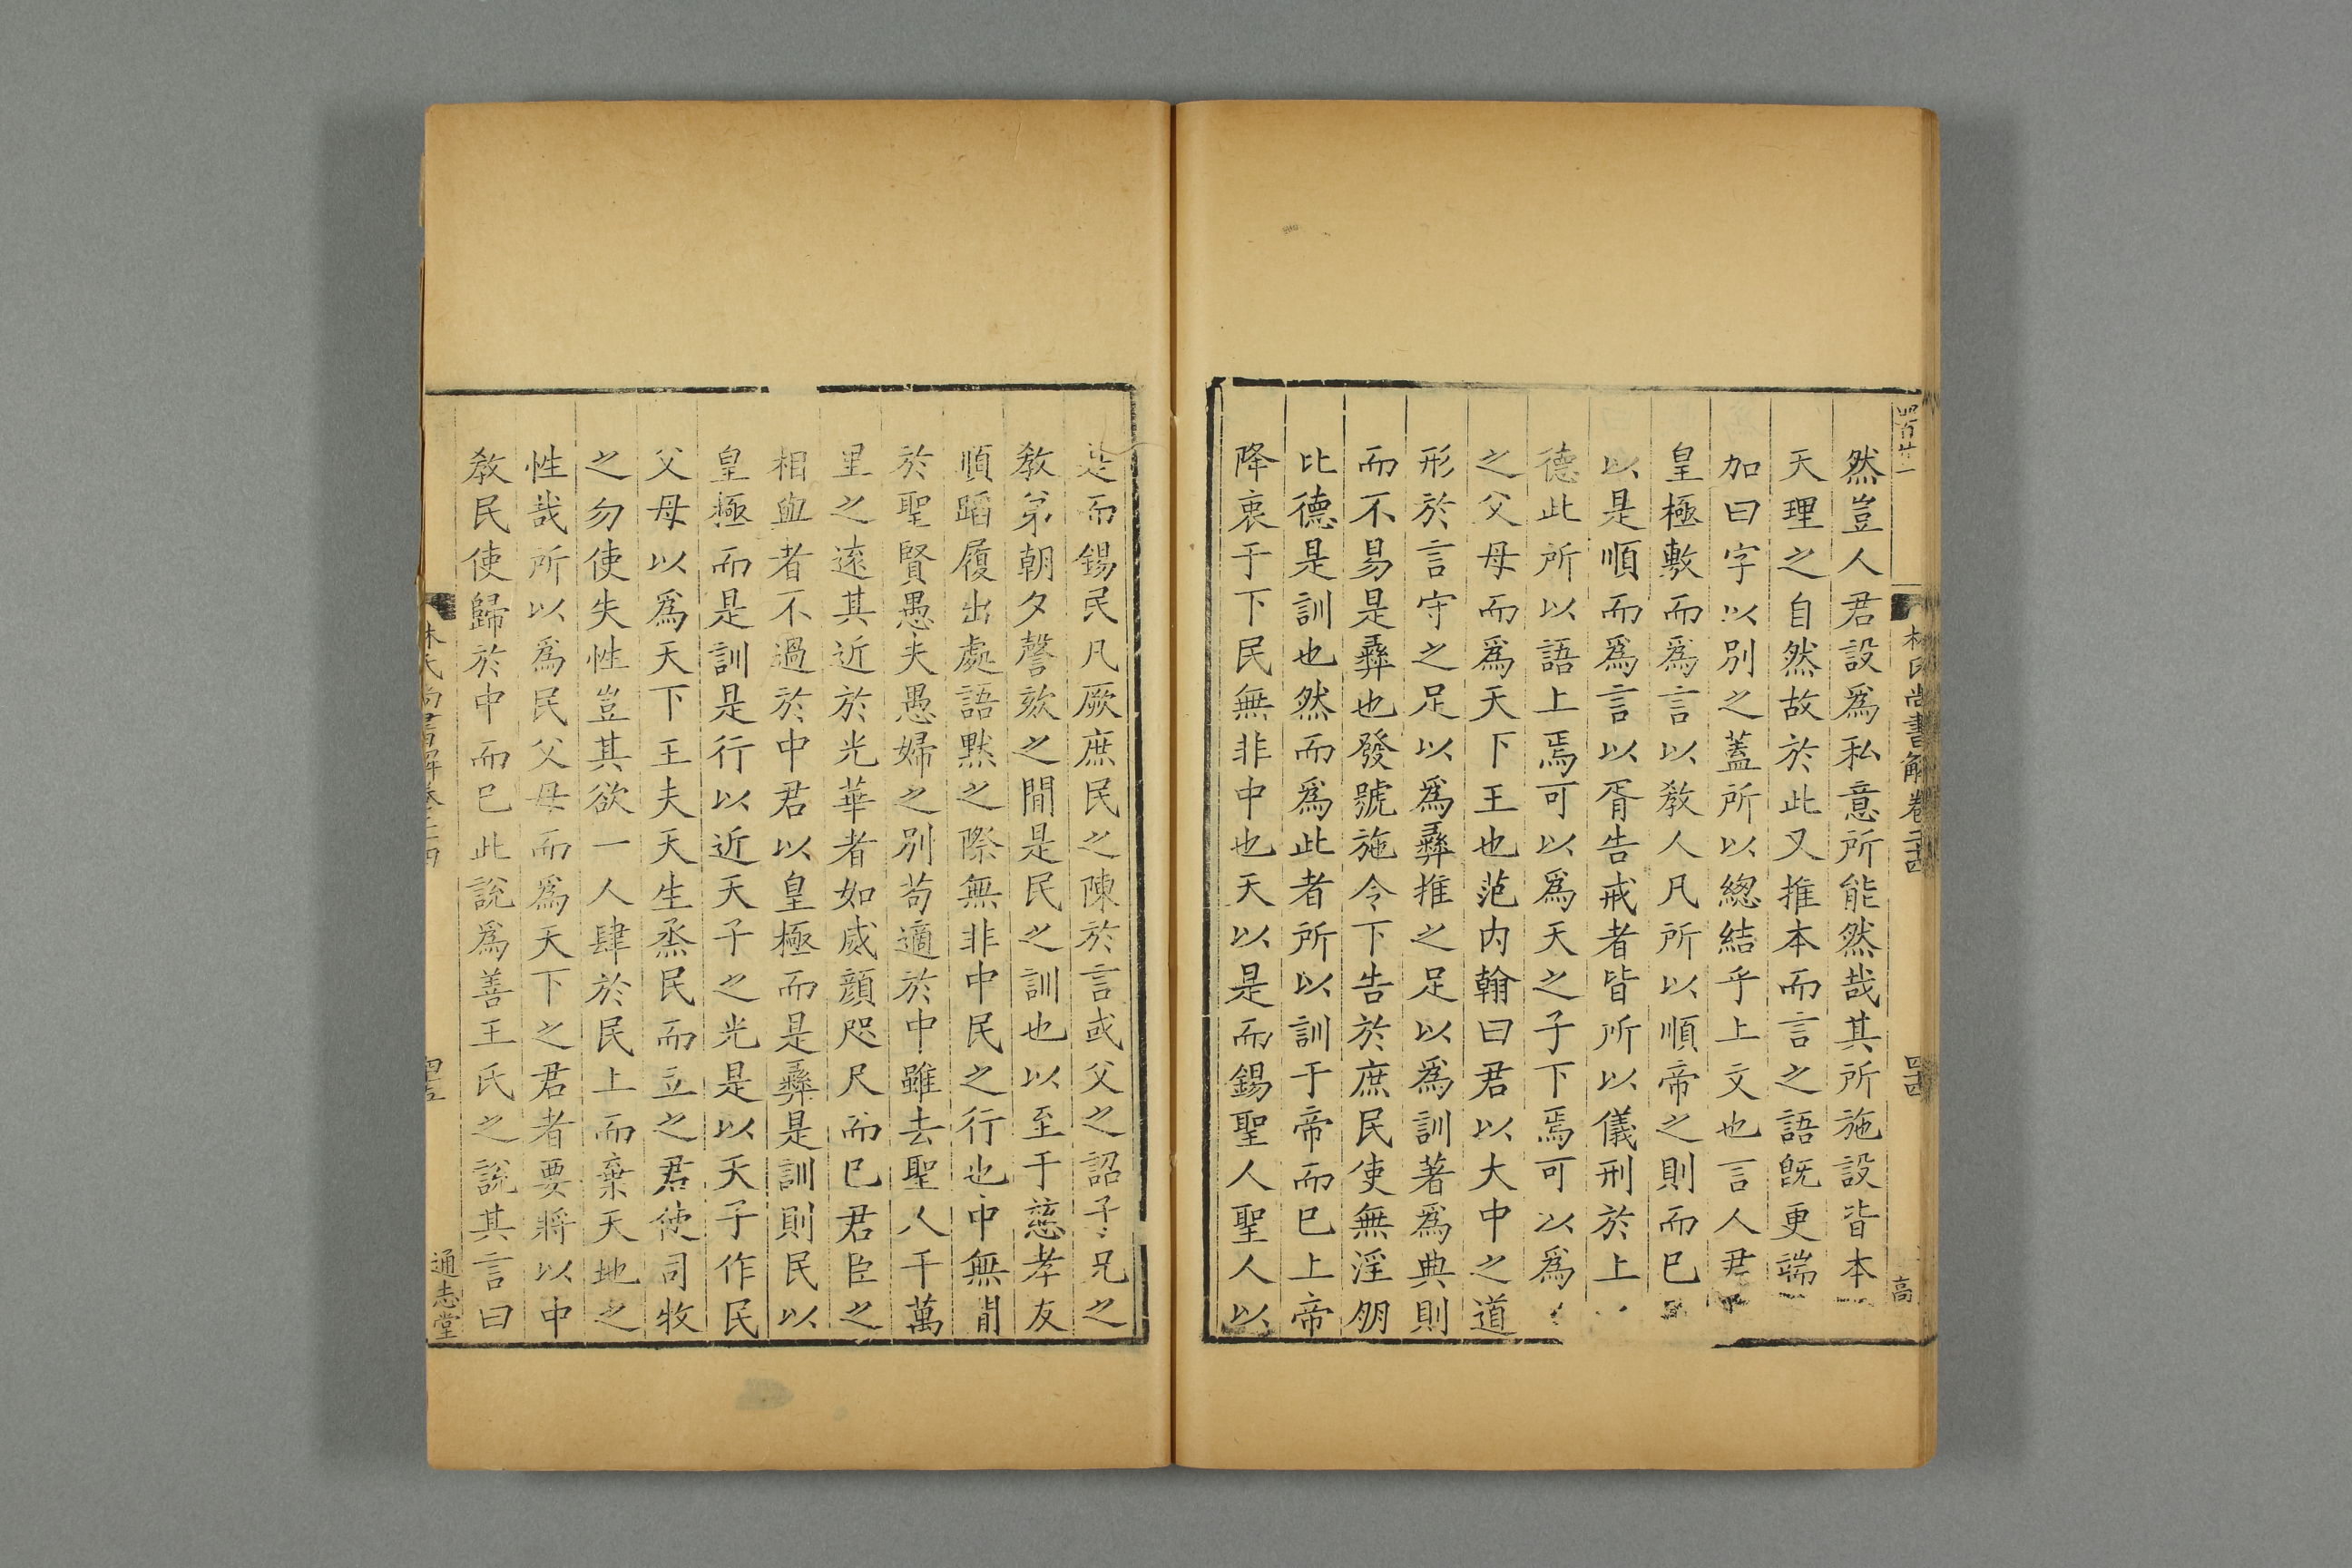 林氏尚書解卷二十四
四四
高
然豈人君設爲私意所能然哉其所施設皆本
天理之自然故於此又推本而言之語既更端
加曰字以別之蓋所以總結乎上文也言人君
皇極敷而爲言以敎人凡所以順帝之則而已
以是順而爲言以胥告戒者皆所以儀刑於上
德此所以語上焉可以爲天之子下焉可以爲
之父母而爲天下王也范内翰曰君以大中之道
形於言守之足以爲彝推之足以爲訓著爲典則
而不易是彝也發號施令下告於庶民使無淫朋
比德是訓也然而爲此者所以訓于帝而已上帝
降衷于下民無非中也天以是而錫聖人聖人以
是而錫民凡厥庶民之陳於言或父之詔子兄之
敎弟朝夕謦欬之間是民之訓也以至于慈孝友
順蹈履出處語黙之際無非中民之行也中無間
於聖賢愚夫愚婦之別苟適於中雖去聖人千萬
里之遠其近於光華者如威顔咫尺而已君臣之
相與者不過於中君以皇極而是彝是訓則民以
皇極而是訓是行以近天子之光是以天子作民
父母以爲天下王夫天生烝民而立之君使司牧
之勿使失性豈其欲一人肆於民上而棄天地之
性哉所以爲民父母而爲天下之君者要將以中
敎民使歸於中而已此說爲善王氏之說其言曰
林氏尚書解卷二十四
四五
通志堂